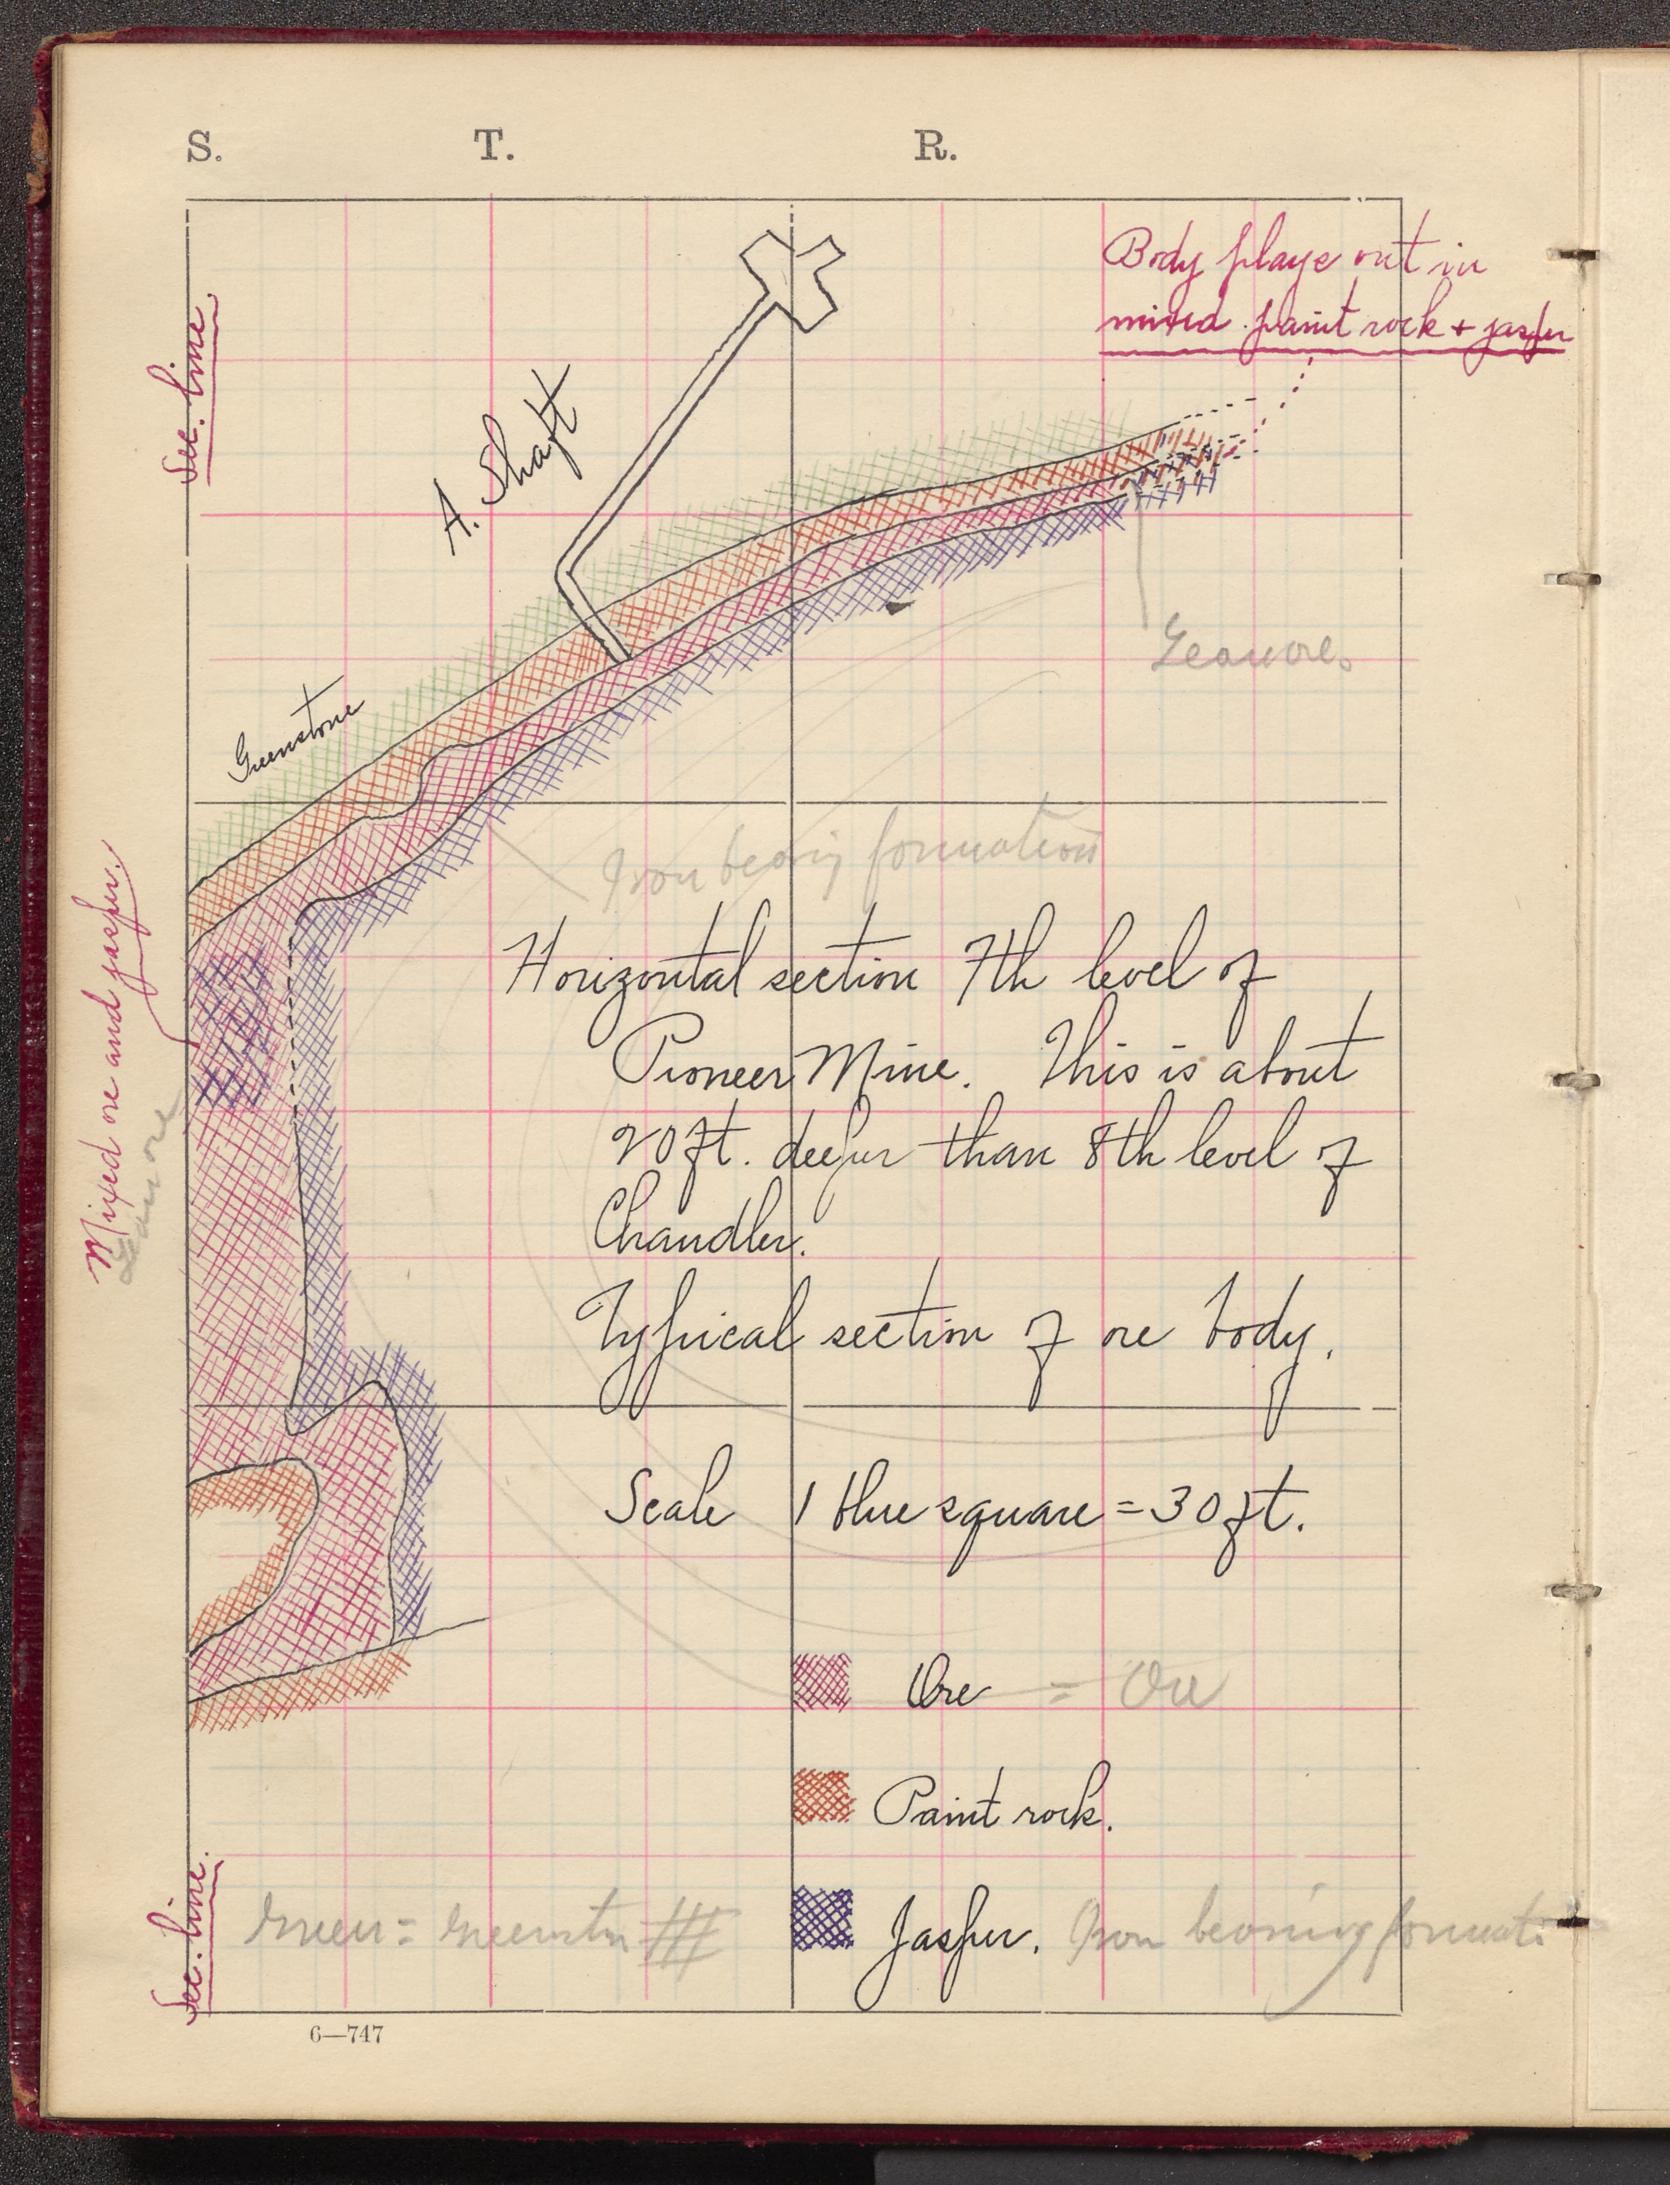 S. T. R.
Body plays out in
mixed paint rock + jasper
Sec. line.
A. Shaft
Lean ore.
Greenstone
Iron bearing formation
Mixed ore and jasper.
Lean ore
Horizontal section 7th level of
Pioneer Mine. This is about
20 ft. deeper than 8th level of
Chandler.
Typical section of ore body.
Scale 1 blue square = 30 ft.
Ore = Ore
Paint rock.
Sec. line.
Green = Greenstn
Jasper. Iron bearing formati
6—747